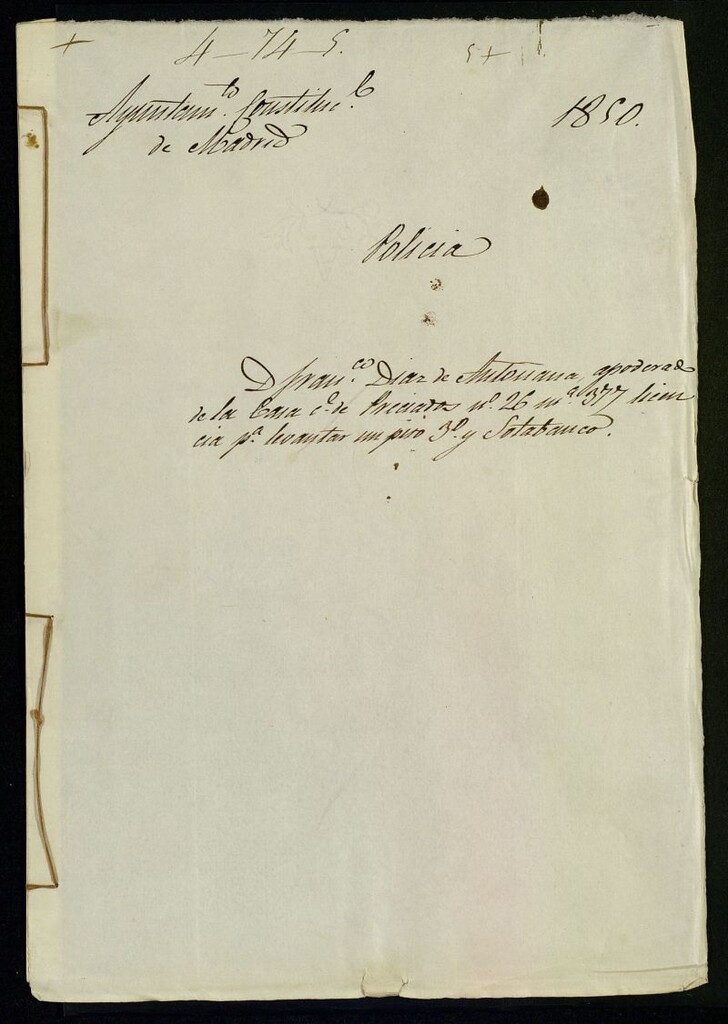 + 4-74-5. 5+
Ayuntam.to Constituc.l 1850.
de Madrid
Policia
D. Fran.co Diaz de Antoñana, apoderado
de la Casa c.e de Preciados n.o 26 m.a 377 licen
cia p.a levantar un piso 3.o y Sotabanco.